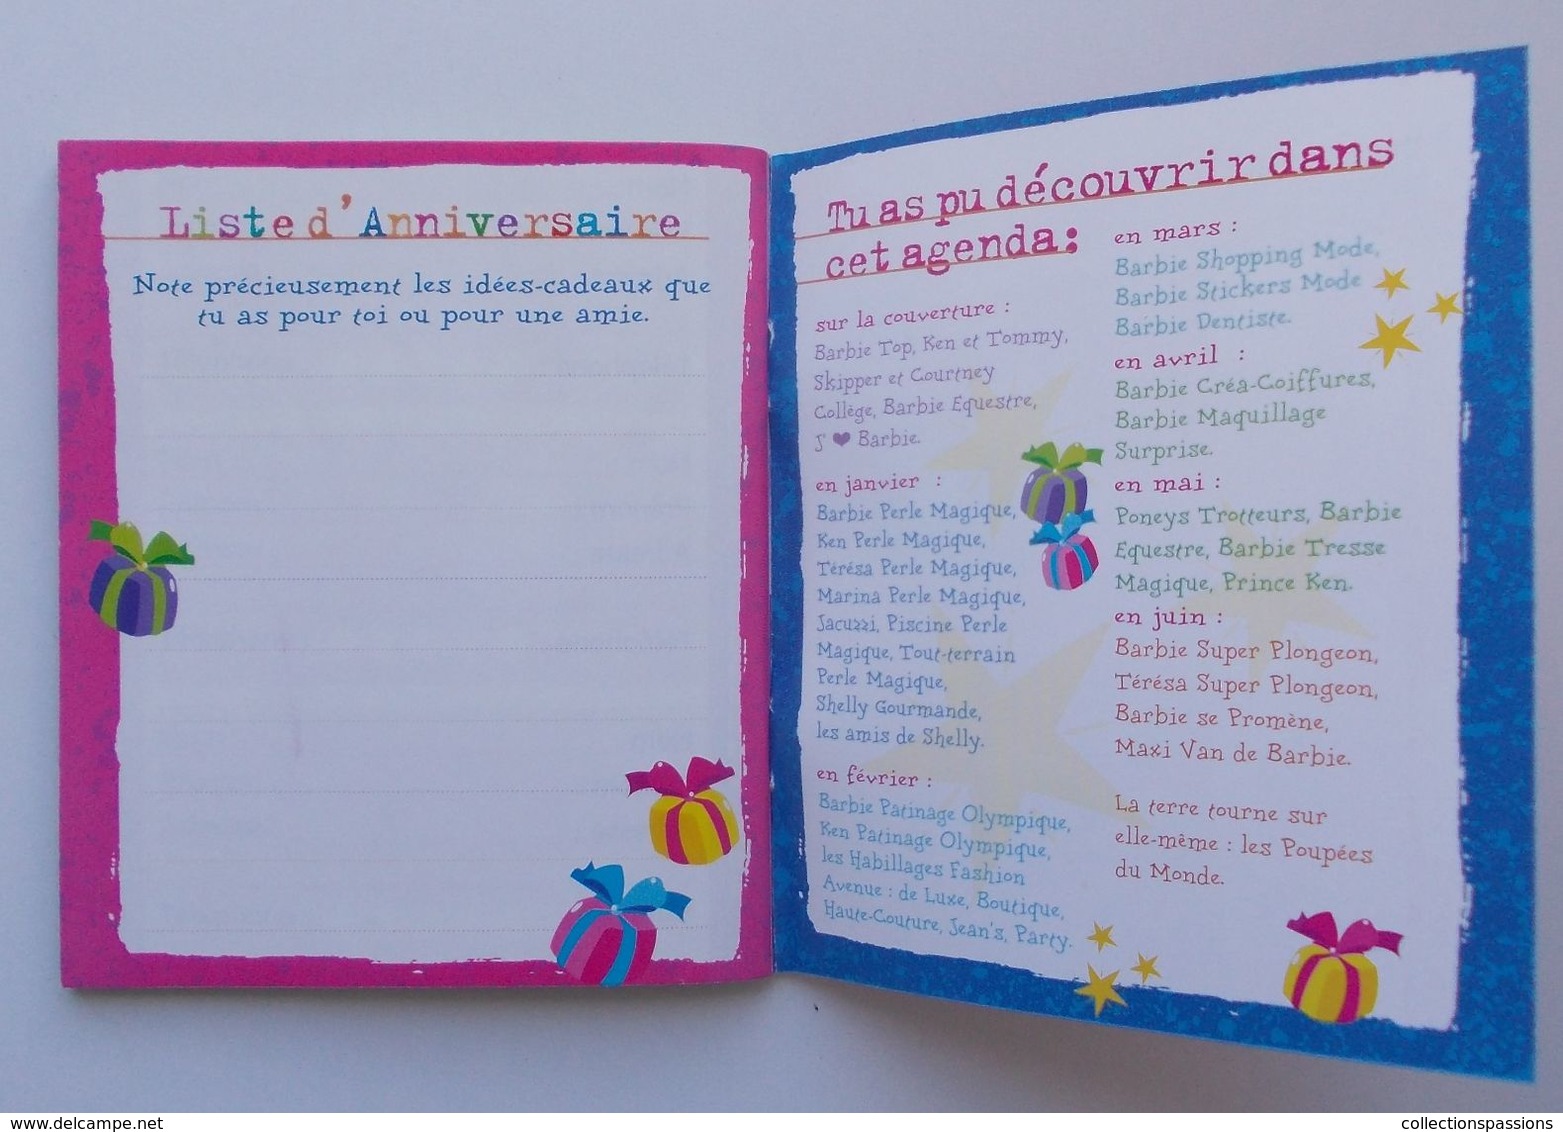 Liste d'Anniversaire
Note précieusement les idées-cadeaux que
tu as pour toi ou pour une amie.
Tu as pu découvrir dans
cet agenda :
sur la couverture :
Barbie Top, Ken et Tommy,
Skipper et Courtney
Collège, Barbie Equestre,
J' ❤ Barbie.
en janvier :
Barbie Perle Magique,
Ken Perle Magique,
Térésa Perle Magique,
Marina Perle Magique,
Jacuzzi, Piscine Perle
Magique, Tout-terrain
Perle Magique,
Shelly Gourmande,
les amis de Shelly.
en février :
Barbie Patinage Olympique,
Ken Patinage Olympique,
les Habillages Fashion
Avenue : de Luxe, Boutique,
Haute-Couture, Jean's, Party.
en mars :
Barbie Shopping Mode,
Barbie Stickers Mode
Barbie Dentiste.
en avril :
Barbie Créa-Coiffures,
Barbie Maquillage
Surprise.
en mai :
Poneys Trotteurs, Barbie
Equestre, Barbie Tresse
Magique, Prince Ken.
en juin :
Barbie Super Plongeon,
Térésa Super Plongeon,
Barbie se Promène,
Maxi Van de Barbie.
La terre tourne sur
elle-même : les Poupées
du Monde.
www.delcampe.net
collectionspassions